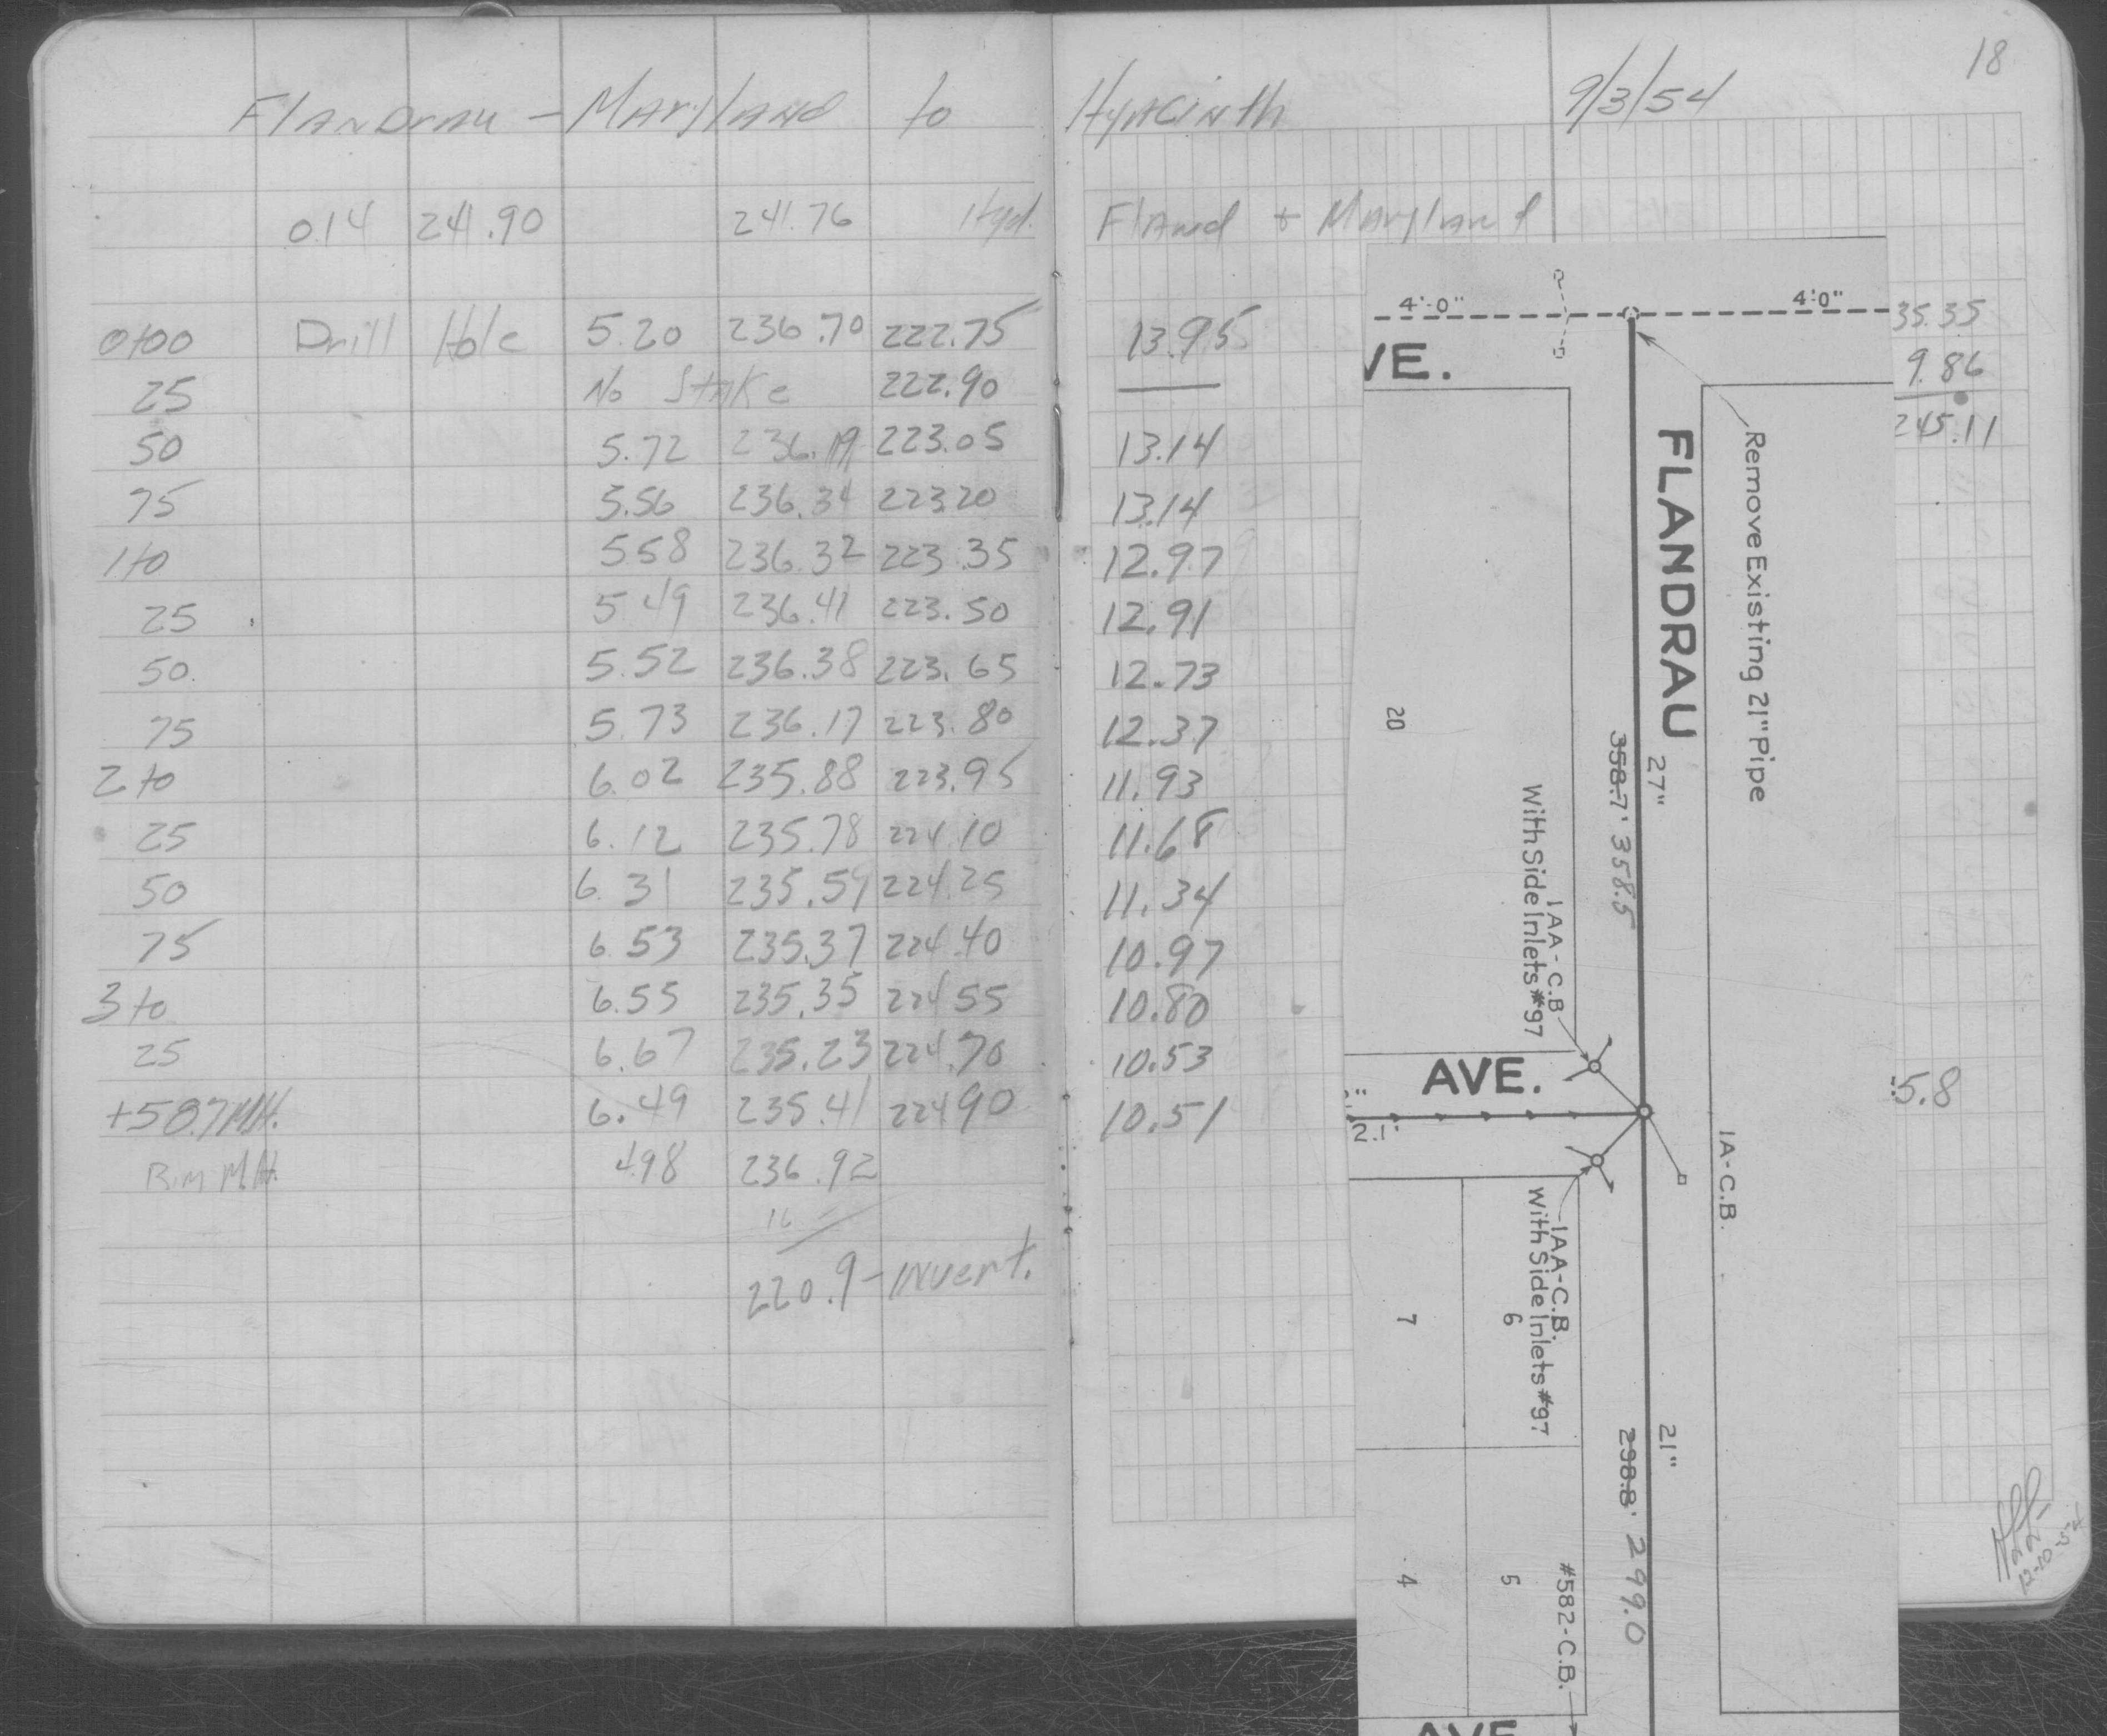 18
Flandrau - Maryland to Hyacinth 9/3/54
0.14 241.90 241.76 Hyd. Fland + Maryland
0+00 Drill Hole 5.20 236.70 222.75 13.95
25 No Stake 222.90
50 5.72 236.19 223.05 13.14
75 5.56 236.34 223.20 13.14
1+0 5.58 236.32 223.35 12.97
25 5.49 236.41 223.50 12.91
50. 5.52 236.38 223.65 12.73
75 5.73 236.17 223.80 12.37
2+0 6.02 235.88 223.95 11.93
25 6.12 235.78 224.10 11.68
50 6.31 235.59 224.25 11.34
75 6.53 235.37 224.40 10.97
3+0 6.55 235.35 224.55 10.80
25 6.67 235.23 224.70 10.53
+58.7 M.H. 6.49 235.41 224.90 10.51
Rim M.H. 4.98 236.92
16
220.9 - Invert.
35.35
9.86
245.11
5.8
4'-0" 4'-0"
VE.
FLANDRAU
Remove Existing 21" Pipe
27"
358.7' 358.5
20
1AA-C.B
With Side Inlets #97
AVE.
2.1'
1A-C.B.
1AA-C.B.
With Side Inlets #97
7
6
21"
298.8' 299.0
4
5
#582-C.B.
AVE
12-10-54